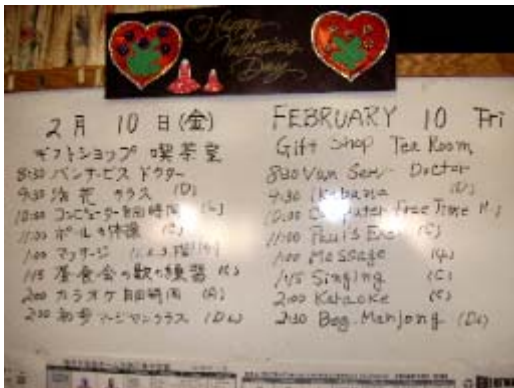 Happy
Valentine's
Day
2月 10日(金)
ギフトショップ 喫茶室
8:30 バンサービス ドクター
9:30 活花 クラス (D)
10:00 コンピューター自由時間
11:00 ポールの体操 (C)
1:00 マッサージ
1:15 昼食会の歌の練習 (C)
2:00 カラオケ自由時間 (A)
2:30 初歩マージャンクラス (Du)
FEBRUARY 10 Fri
Gift Shop Tea Room
8:30 Van Serv Doctor
9:30 Ikebana (D)
10:00 Computer Free Time
11:00 Paul's Exe (C)
1:00 Massage
1:15 Singing (C)
2:00 Karaoke
2:30 Beg. Mahjong